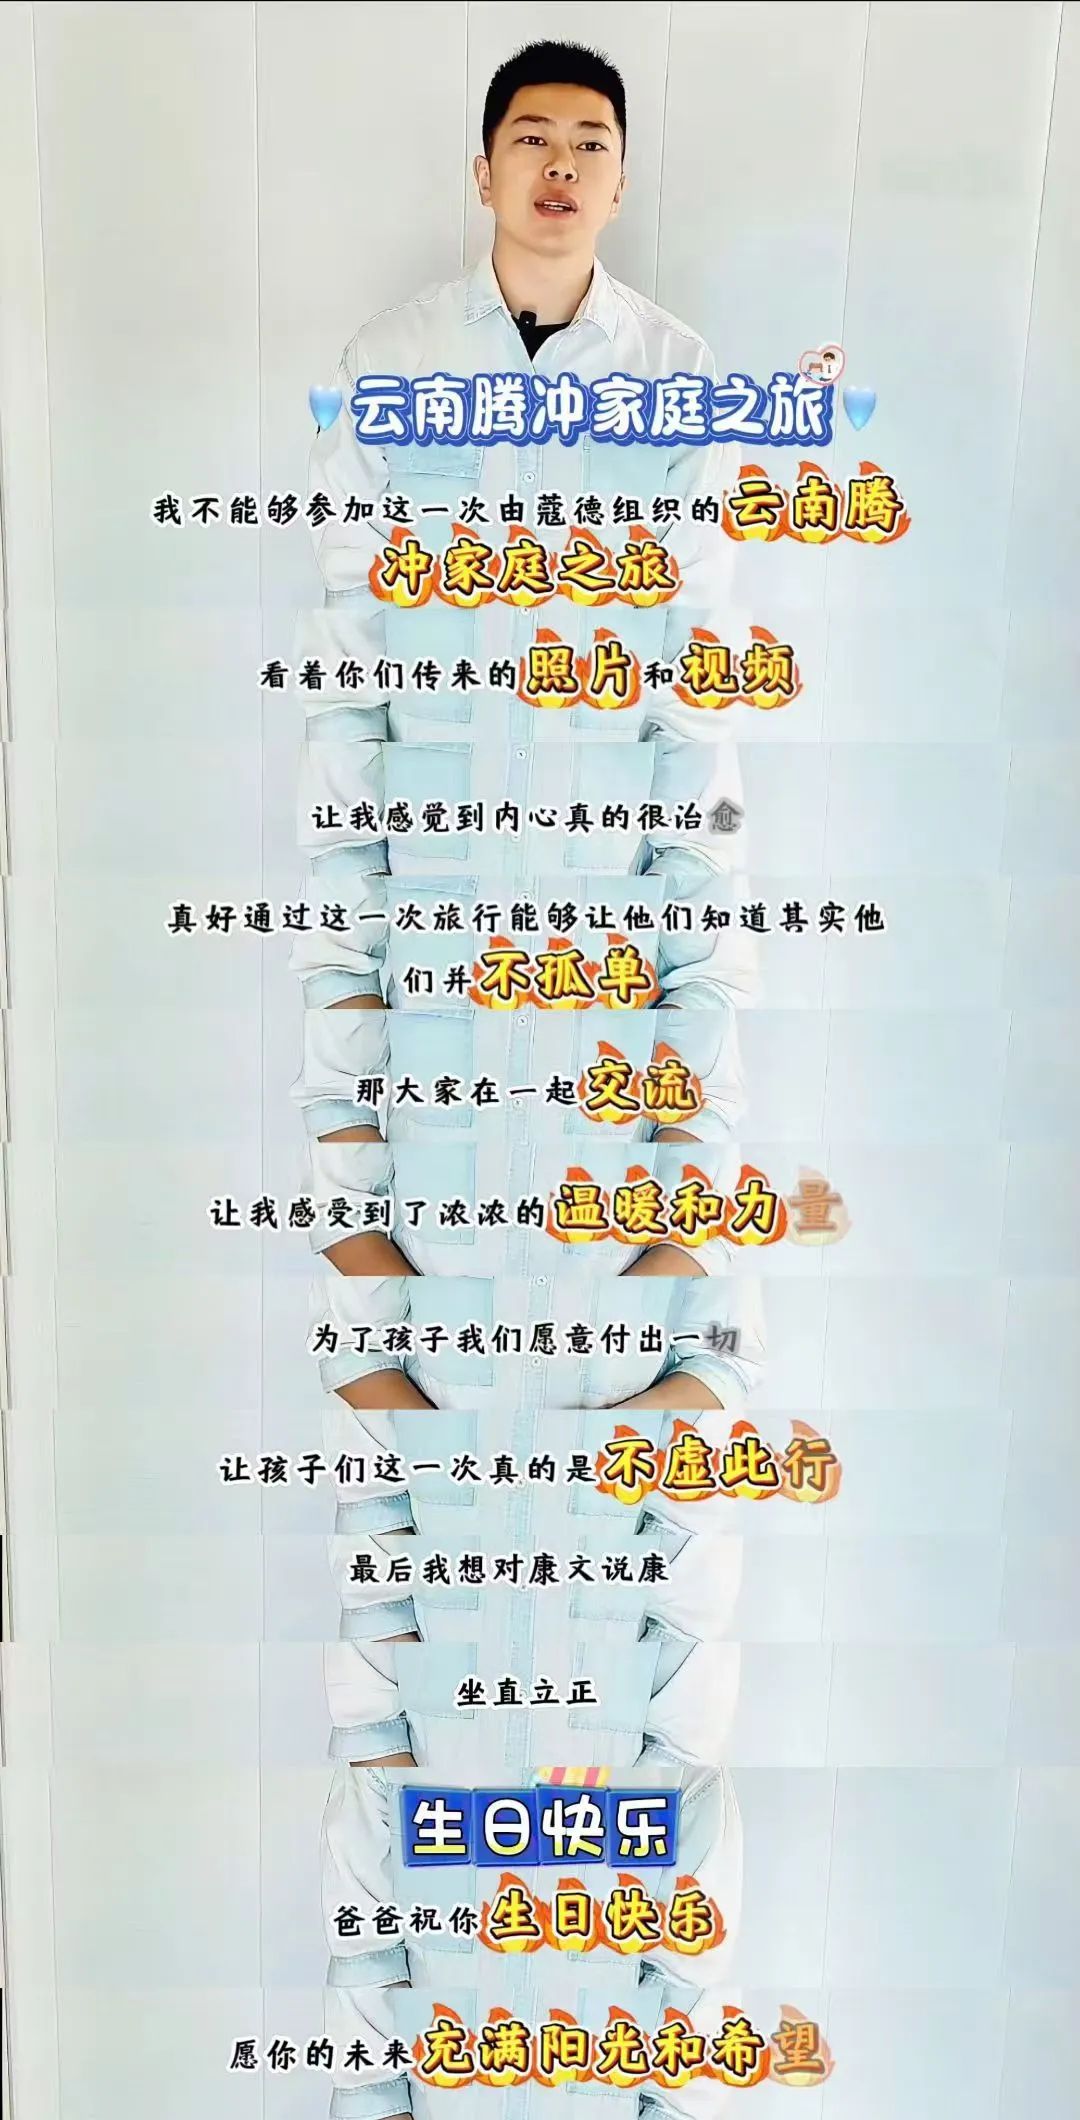 云南腾冲家庭之旅
我不能够参加这一次由蔻德组织的云南腾
冲家庭之旅
看着你们传来的照片和视频
让我感觉到内心真的很治愈
真好通过这一次旅行能够让他们知道其实他
们并不孤单
那大家在一起交流
让我感受到了浓浓的温暖和力量
为了孩子我们愿意付出一切
让孩子们这一次真的是不虚此行
最后我想对康文说康
坐直立正
生日快乐
爸爸祝你生日快乐
愿你的未来充满阳光和希望